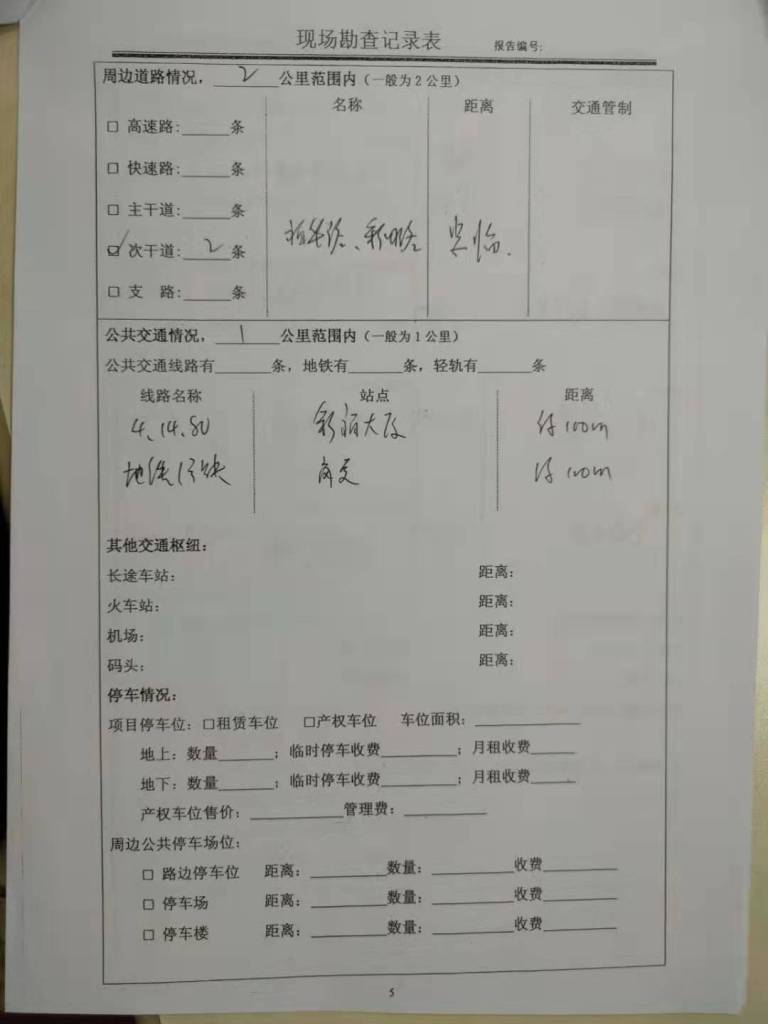 现场勘查记录表 报告编号:
周边道路情况，2公里范围内（一般为2公里）
名称 距离 交通管制
□ 高速路:_____条
□ 快速路:_____条
□ 主干道:_____条
☑ 次干道: 2 条
□ 支 路:_____条
公共交通情况，1公里范围内（一般为1公里）
公共交通线路有______条，地铁有______条，轻轨有______条
线路名称 站点 距离
4、14、80 大厦 约100m
地铁1号线 100m
其他交通枢纽：
长途车站： 距离：
火车站： 距离：
机场： 距离：
码头： 距离：
停车情况：
项目停车位：□租赁车位 □产权车位 车位面积：____________
地上：数量______；临时停车收费________；月租收费_____
地下：数量______；临时停车收费________；月租收费_____
产权车位售价：__________管理费：_________
周边公共停车场位：
□ 路边停车位 距离：________数量：_________收费________
□ 停车场 距离：________数量：_________收费________
□ 停车楼 距离：________数量：_________收费________
5